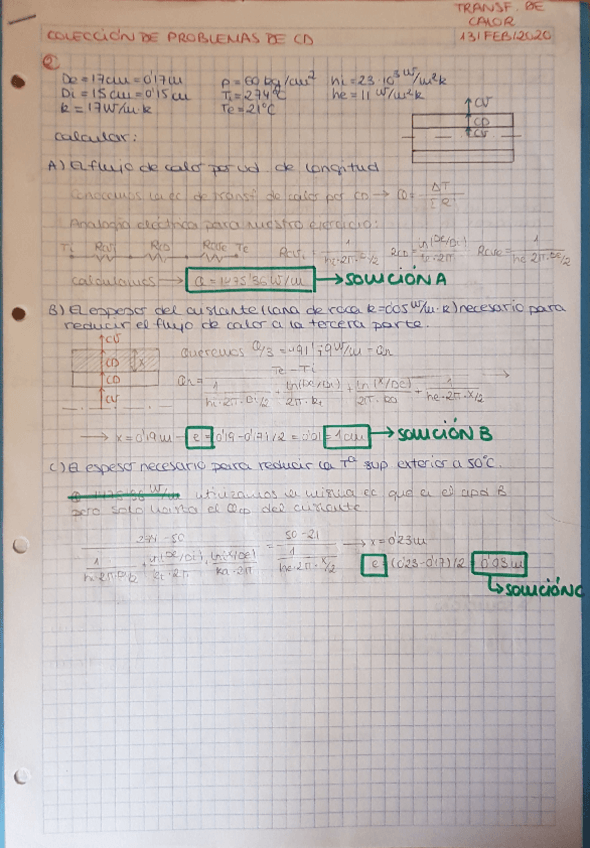 TRANSF. DE
CALOR
COLECCIÓN DE PROBLEMAS DE CD
13/FEB/2020
2
De = 17cm = 0'17m
Di = 15cm = 0'15m
k = 17 W/m·k
p = 60 kg/cm²
Ti = 274°C
Te = 21°C
hi = 23·10³ W/m²k
he = 11 W/m²k
CV
CD
CV
Calcular:
A) El flujo de calor por ud de longitud
Conocemos la ec de transf. de calor por CD → Q = ΔT / ΣR
Analogía eléctrica para nuestro ejercicio:
Ti Rcvi Rcd Rcve Te
Rcvi = 1 / hi·2π·Di/2
Rcd = ln(De/Di) / k·2π
Rcve = 1 / he·2π·De/2
calculamos → Q = 1475'36 W/m → SOLUCIÓN A
B) El espesor del aislante (lana de roca k=0'05 W/m·k) necesario para
reducir el flujo de calor a la tercera parte.
CV
CD
CD
CV
x
Queremos Q/3 = 491'79 W/m = Qn
Qn = Te - Ti / 1/hi·2π·Di/2 + ln(De/Di)/2π·k1 + ln(x/De)/2π·ka + 1/he·2π·x/2
→ x = 0'19m → e = (0'19-0'17)/2 = 0'01 = 1cm → SOLUCIÓN B
C) El espesor necesario para reducir la Tª sup exterior a 50°C.
utilizamos la misma ec que en el apdo B
pero solo hasta el QCD del aislante
274 - 50 / 1/hi·2π·Di/2 + ln(De/Di)/k1·2π + ln(x/De)/ka·2π = 50 - 21 / 1/he·2π·x/2 → x = 0'23m
e = (0'23-0'17)/2 = 0'03m
→ SOLUCIÓN C